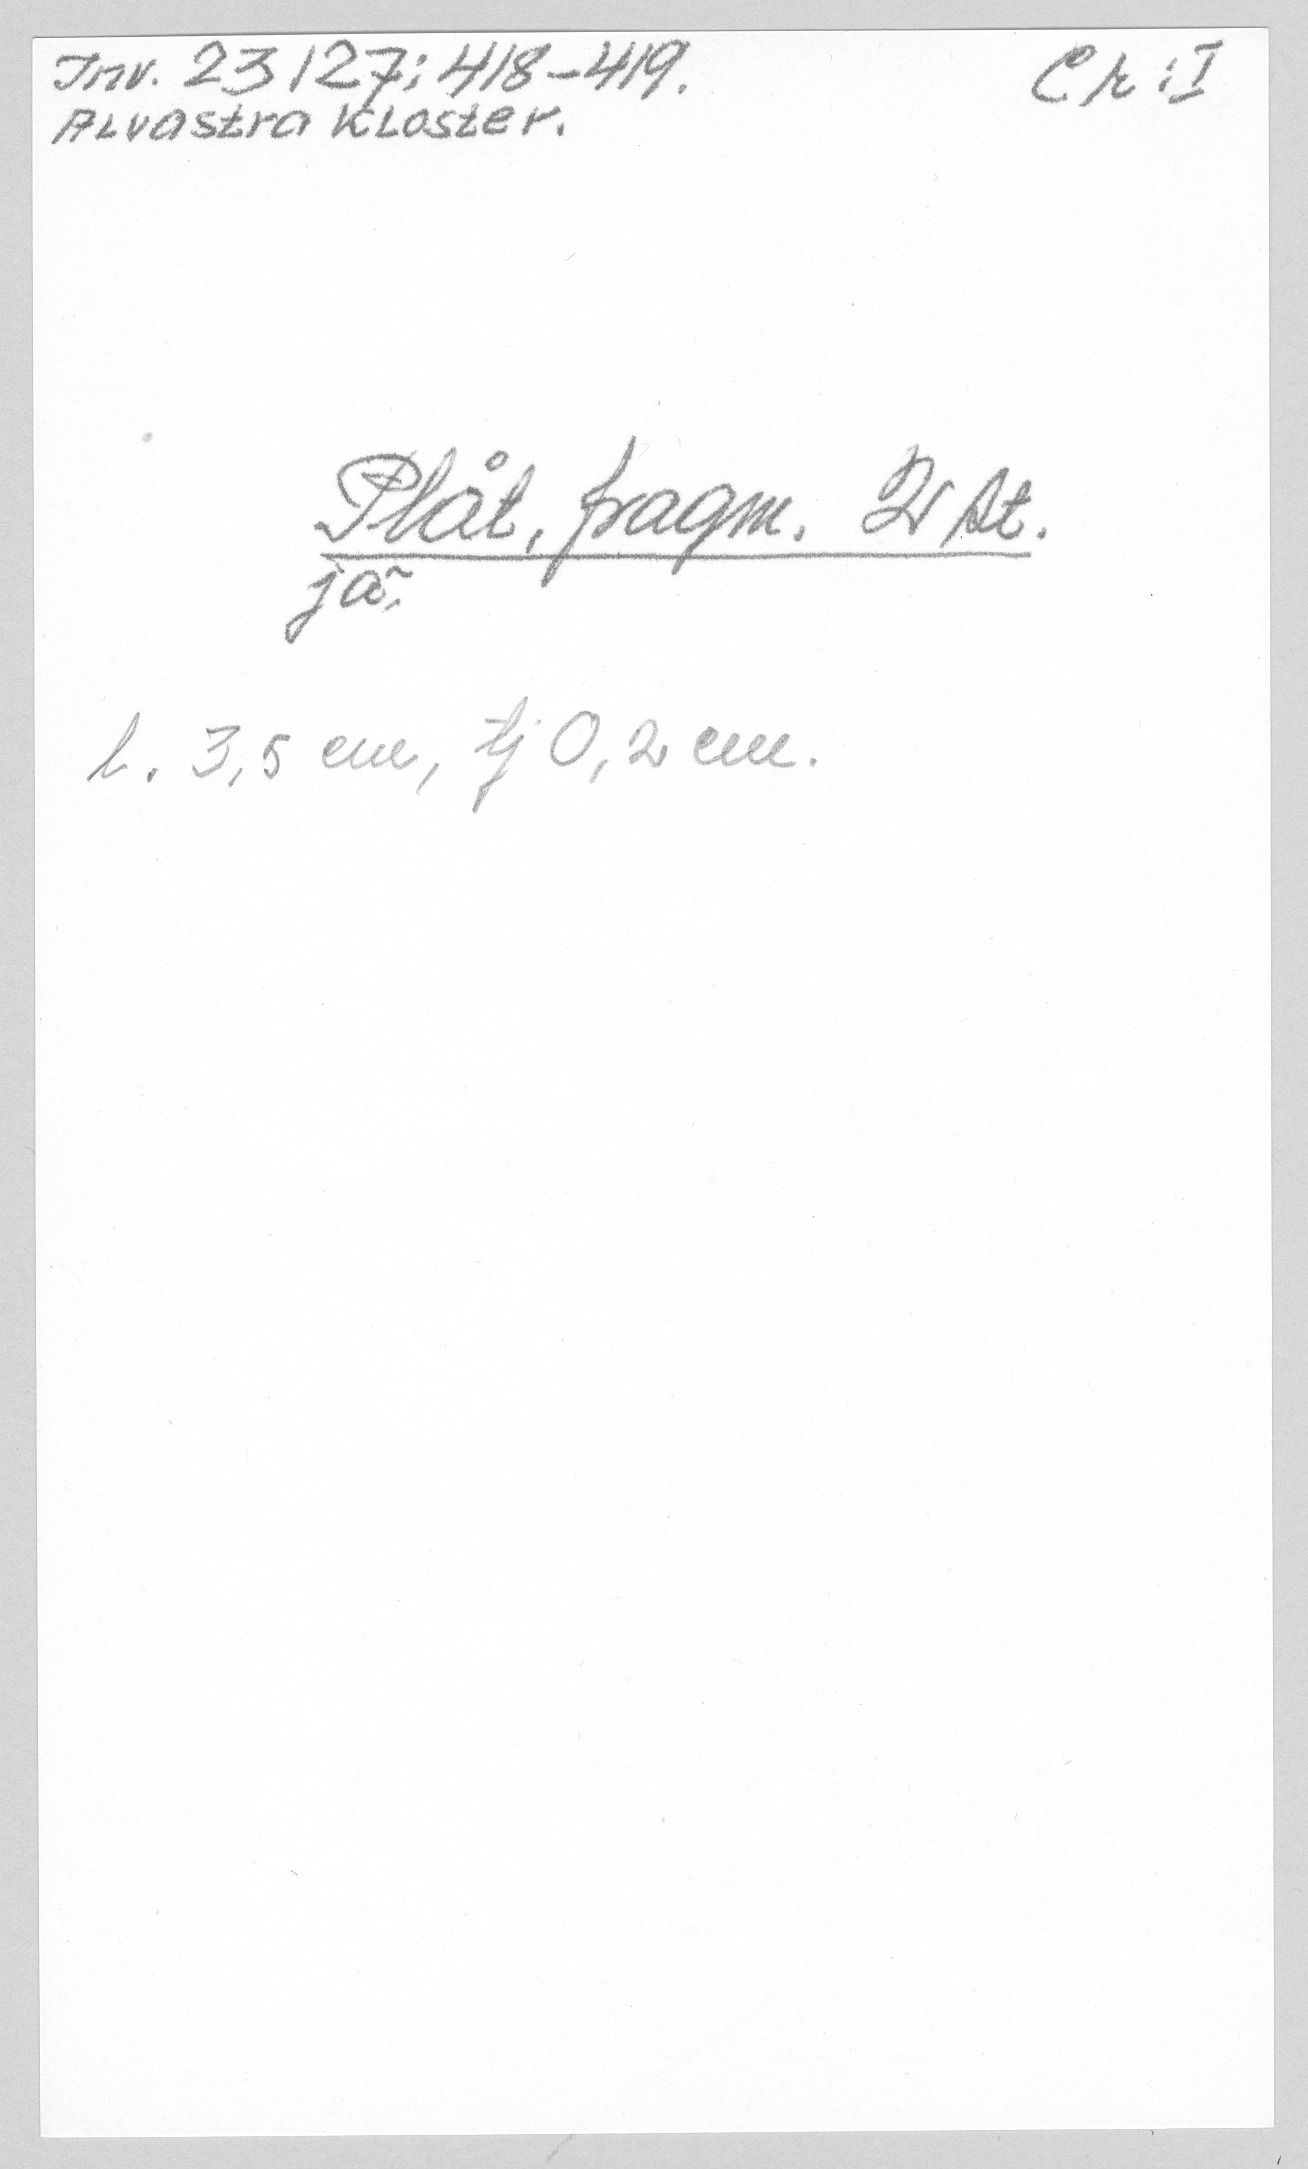 Inv. 23127:418-419.
Ck:I
Alvastra Kloster.
Plåt, fragm. 2 st.
jä.
l. 3,5 cm, tj 0,2 cm.